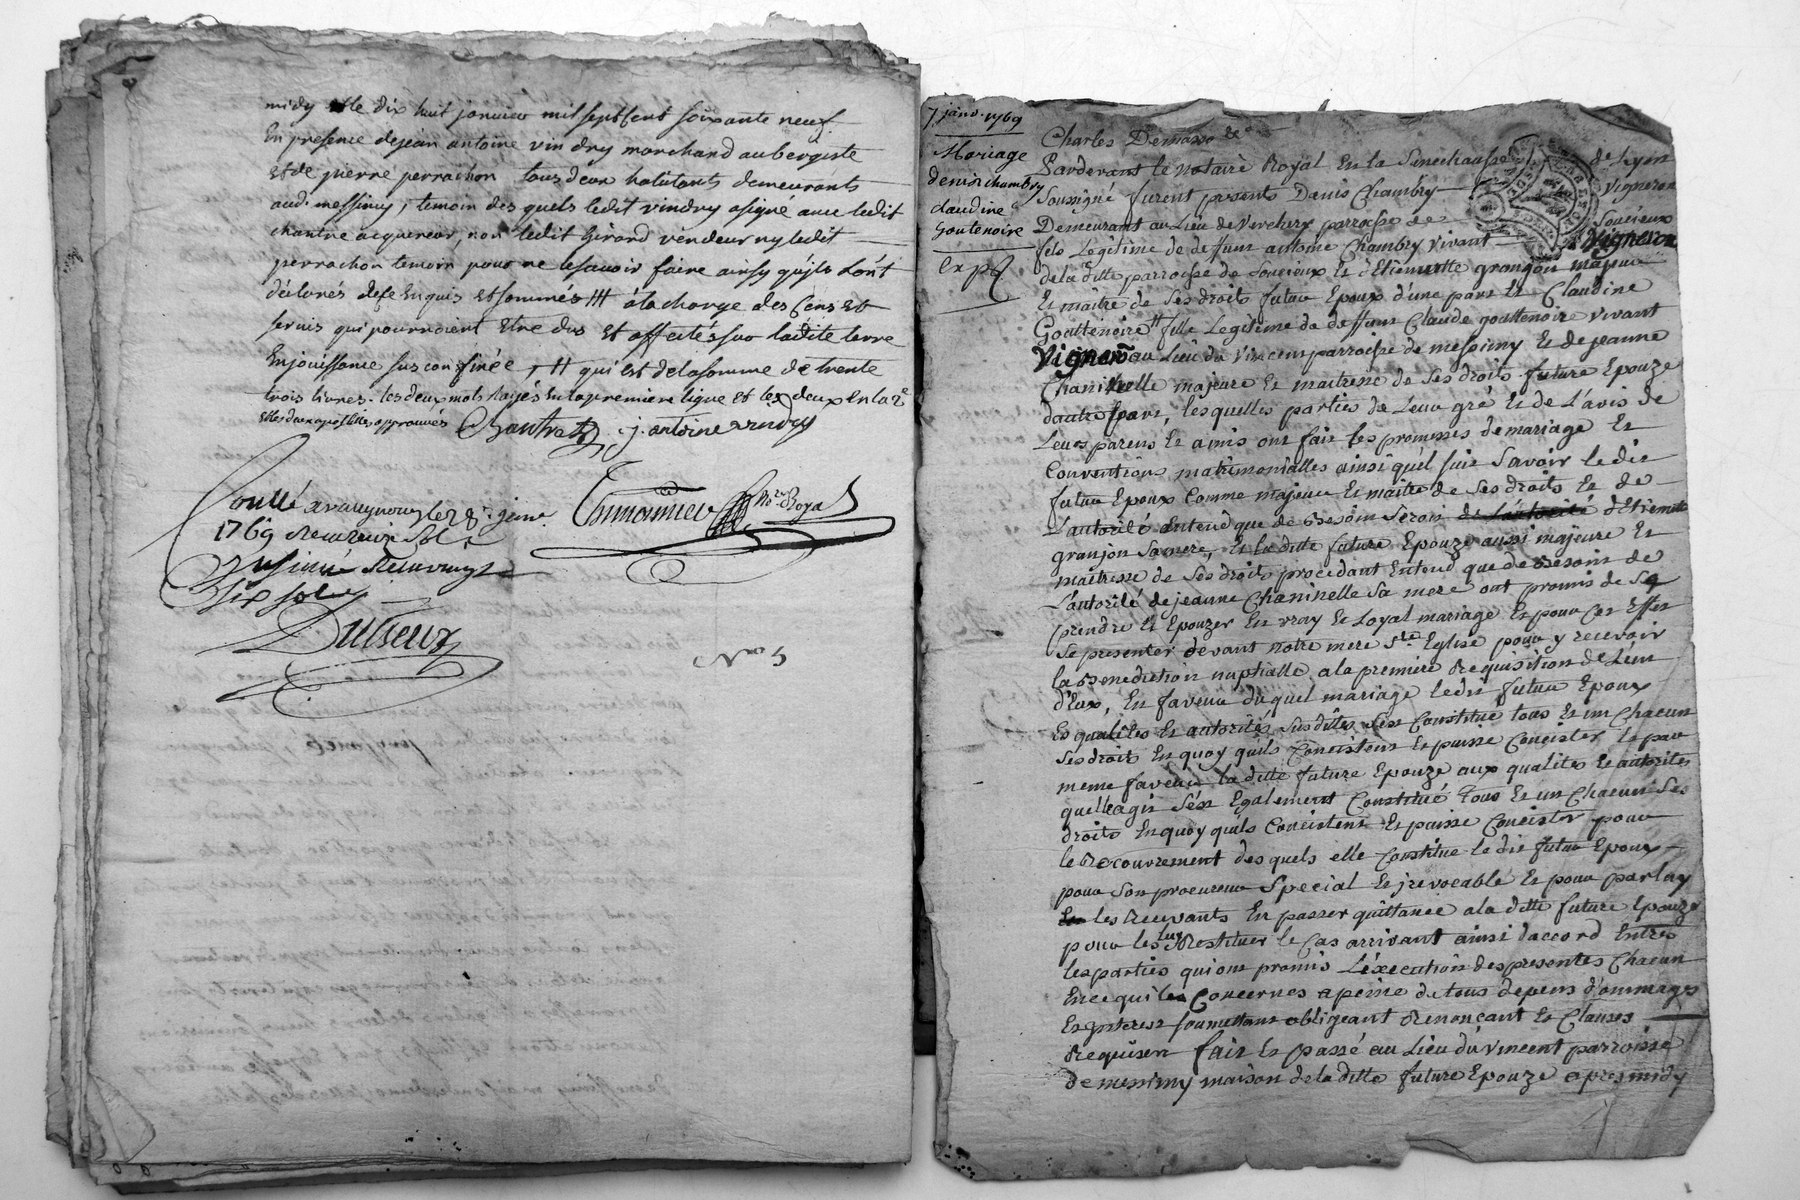 midy et le dix huit janvier mil sept cent soixante neuf
En presence de jean antoine vindry marchand aubergiste
et de pierre perrachon tous deux habitants demeurants
audi messimy, temoin des quels ledit vindry a signé avec ledit
chantre acquereur, non ledit Girard vendeur ny ledit
perrachon temoin pour ne le savoir faire ainsy qu'ils l'ont
déclarés de ce Enquis et sommés ttt à la charge des cens et
servis qui pourroient Etre dus et affectés sur ladite terre
En jouissance sus confinée, tt qui est de la somme de trente
trois livres. les deux mots rayés En la premiere ligne et les deux en la 2e
et les deux apostilles approuvés Chantre j. antoine vindry
Conllé a vaugneray le 28e janv.
1769 Reçu treize sols
Insinué Reçu vingt
Six sols
Dutreux
Thimonnier Nre Royal
7 janv. 1769
Mariage
denis chambry
claudine
Goutenoire
Exp
Charles Demasso de
Pardevant le notaire Royal En la Senechaussée de Lyon
Soussigné furent presents Denis Chambry vigneron
Demeurant au Lieu de Verchery parroisse de Soucieux
fils Légitime de deffunt antoine Chambry vivant vigneron
de la ditte parroisse de Soucieux Et d'Etiennette granjon majeur
Et maître de Ses droits futur Epoux d'une part Et Claudine
Gouttenoire tt fille Legitime de deffunt Claude gouttenoire vivant
vigneron au Lieu du vincent parroisse de messimy Et de jeanne
Chaninelle majeure Et maitresse de Ses droits future Epouze
dautre part, lesquelles parties de Leur gré Et de L'avis de
Leurs parens Et amis ont fait les promesses de mariage Et
Conventions matrimonialles ainsi quél suit Savoir le dit
futur Epoux Comme majeur Et maître de Ses droits Et de
L'autorité Entend que de Besoin Seroit de l'autorité d'Etiennette
granjon Sa mere, Et la ditte future Epouze aussi majeure Et
maitresse de Ses droits procedant Entend que de Besoin de
L'autorité de jeanne Chaninelle Sa mere ont promis de Se
prendre Et Epouzer En vray Et Loyal mariage Et pour Cet Effet
Se presenter devant notre mere Ste Eglise pour y recevoir
la Benediction nuptialle a la premiere Requisition de L'un
d'Eux, En faveur du quel mariage ledit futur Epoux
Es qualités Et autorités Susdittes S'est Constitué tous Et un Chacun
Ses droits En quoy quils Concistent Et puisse Concister Et par
meme faveur la ditte future Epouze aux qualités Et autorités
quélle agit S'ést Egalement Constitué Tous Et un Chacun Ses
droits En quoy quils Concistent Et puisse Concister pour
le Recouvrement des quels elle Constitue le dit futur Epoux
pour Son procureur Special Et jrevocable Et pour par lay
En les Recevants En passer quittance a la ditte future Epouze
pour les luy Restituer le Cas arrivant ainsi daccord Entres
les parties qui ont promis L'éxecution des presentes Chacun
En ce qui les Concernes a peine de tous depens d'ommages
Et jnterest soumettant obligeant Renonçant Et Clauses
Requisen fait Et passé au Lieu du vincent parroisse
de messimy maison de la ditte future Epouze apres midy